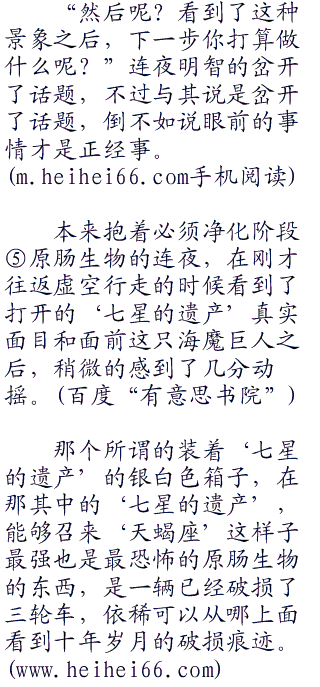 “然后呢？看到了这种
景象之后，下一步你打算做
什么呢？”连夜明智的岔开
了话题，不过与其说是岔开
了话题，倒不如说眼前的事
情才是正经事。
(m.heihei66.com手机阅读)
本来抱着必须净化阶段
⑤原肠生物的连夜，在刚才
往返虚空行走的时候看到了
打开的‘七星的遗产’真实
面目和面前这只海魔巨人之
后，稍微的感到了几分动
摇。(百度“有意思书院”)
那个所谓的装着‘七星
的遗产’的银白色箱子，在
那其中的‘七星的遗产’，
能够召来‘天蝎座’这样子
最强也是最恐怖的原肠生物
的东西，是一辆已经破损了
三轮车，依稀可以从哪上面
看到十年岁月的破损痕迹。
(www.heihei66.com)